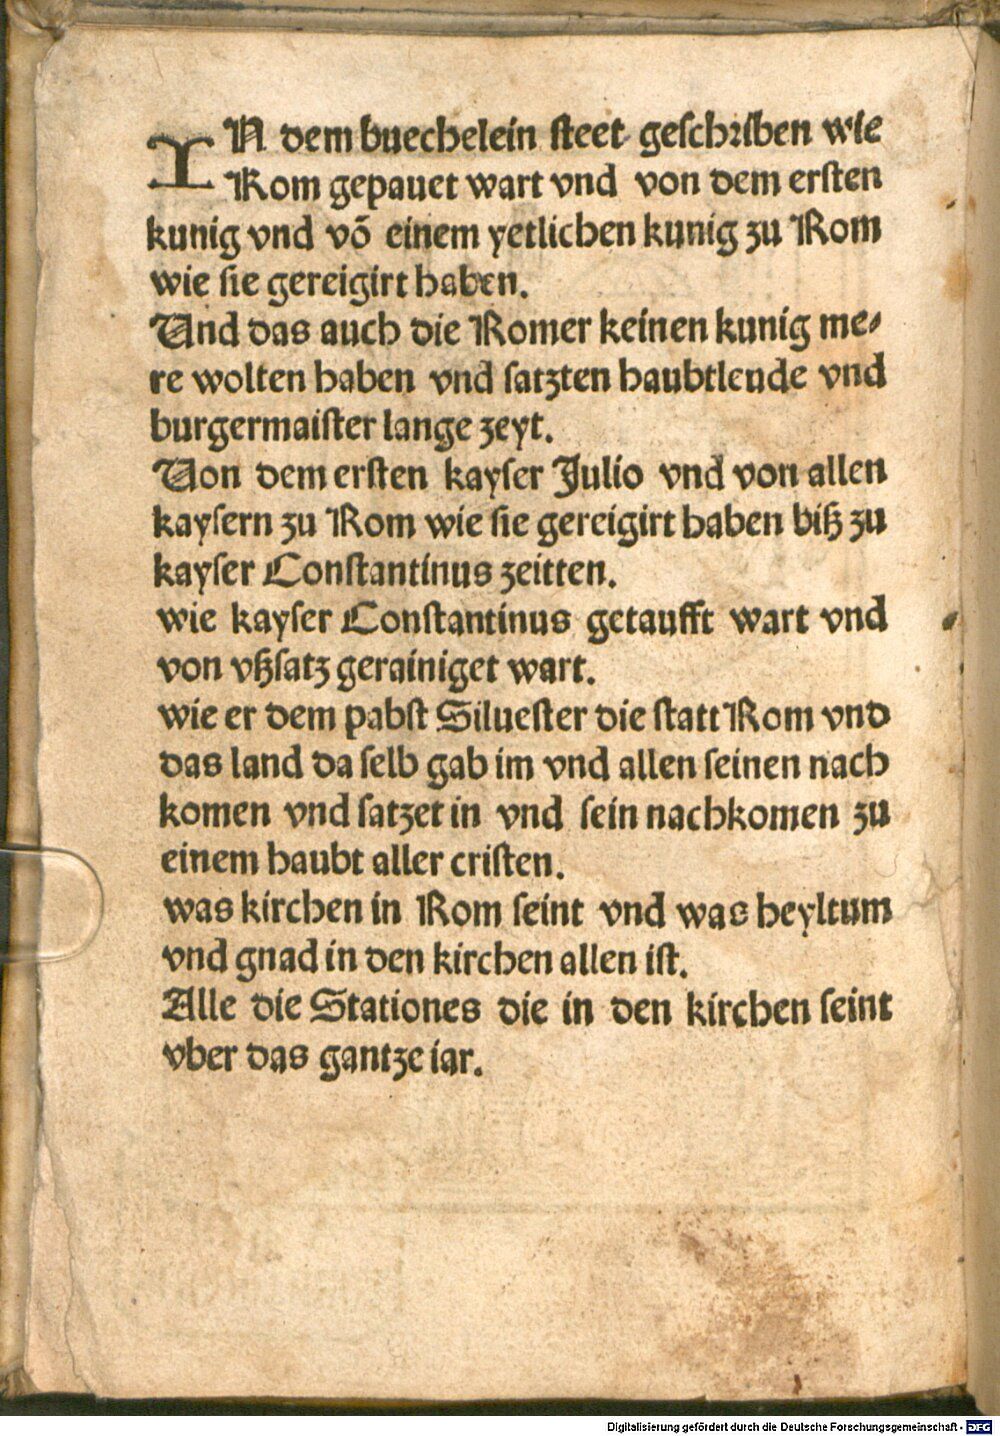 IN dem buechelein steet geschriben wie
Rom gepauet wart vnd von dem ersten
kunig vnd võ einem yetlichen kunig zu Rom
wie sie gereigirt haben.
Und das auch die Romer keinen kunig me⸗
re wolten haben vnd satzten haubtleude vnd
burgermaister lange zeyt.
Uon dem ersten kayser Julio vnd von allen
kaysern zu Rom wie sie gereigirt haben biß zu
kayser Constantinus zeitten.
wie kayser Constantinus getaufft wart vnd
von vßsatz gerainiget wart.
wie er dem pabst Siluester die statt Rom vnd
das land da selb gab im vnd allen seinen nach
komen vnd satzet in vnd sein nachkomen zu
einem haubt aller cristen.
was kirchen in Rom seint vnd was heyltum
vnd gnad in den kirchen allen ist.
Alle die Stationes die in den kirchen seint
vber das gantze iar.
Digitalisierung gefördert durch die Deutsche Forschungsgemeinschaft - DFG